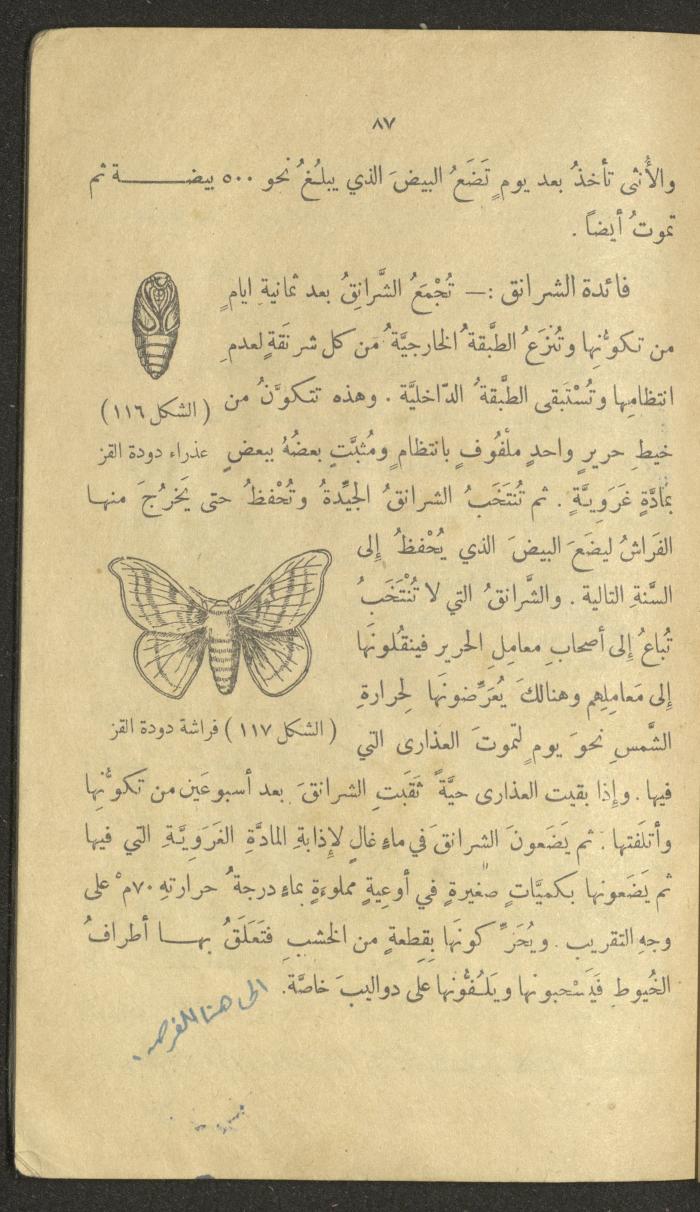 ٨٧
والأُنثى تأخذُ بعد يومٍ تَضَعُ البيضَ الذي يبلُغُ نحو ٥٠٠ بيضـــة ثم
تموتُ أيضاً .
فائدة الشرانق :— تُجْمَعُ الشَّرانِقُ بعد ثمانيةِ ايامٍ
من تكوُّنِها وتُنزَعُ الطَّبقةُ الخارجيَّةُ من كل شرنَقَةٍ لعدمِ
انتظامِها وتُسْتَبقى الطَّبقةُ الدّاخليَّة . وهذه تتكوَّنُ من
(الشكل ١١٦)
خيطِ حريرٍ واحدٍ ملفُوفٍ بانتظامٍ ومُثبَّتٍ بعضُهُ ببعضٍ
عذراء دودة القز
بمادَّةٍ غَرَوِيَّةٍ . ثم تُنتَخَبُ الشرانقُ الجيِّدةُ وتُحْفظُ حتى يَخرُجَ منهـا
الفَراشُ ليضَعَ البيضَ الذي يُحْفظُ إِلى
السَّنةِ التالية . والشَّرانقُ التي لا تُنْتَخَبُ
تُباعُ إِلى أصحابِ معامِلِ الحرير فينقُلونَها
إِلى مَعامِلِهِم وهنالكَ يُعَرِّضونَها لِحرارةِ
الشَّمسِ نحوَ يومٍ لتموتَ العذارى التي
(الشكل ١١٧) فراشة دودة القز
فيها . وإِذا بقيت العذارى حيَّةً ثَقَبَتِ الشرانقَ بعد أسبوعَين من تكوُّنِها
وأتلَفتها . ثم يَضَعونَ الشرانقَ في ماءٍ غالٍ لإِذابةِ المادَّةِ الغَرَوِيَّةِ التي فيها
ثم يَضَعونها بكميَّاتٍ صغيرةٍ في أوعِيةٍ مملوءَةٍ بماءٍ درجةُ حرارتهِ ٧٠م° على
وجهِ التقريب . ويُحَرِّكونَها بِقِطعةٍ من الخشبِ فتَعَلَقُ بهـــا أطرافُ
الخُيوطِ فَيَسْحبونها ويَلُفُّونها على دواليبَ خاصَّة .
الى هنا للفرصه .